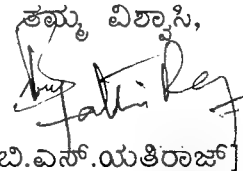 ತಮ್ಮ ವಿಶ್ವಾಸಿ,
ಬಿ.ಎಸ್.ಯತಿರಾಜ್]